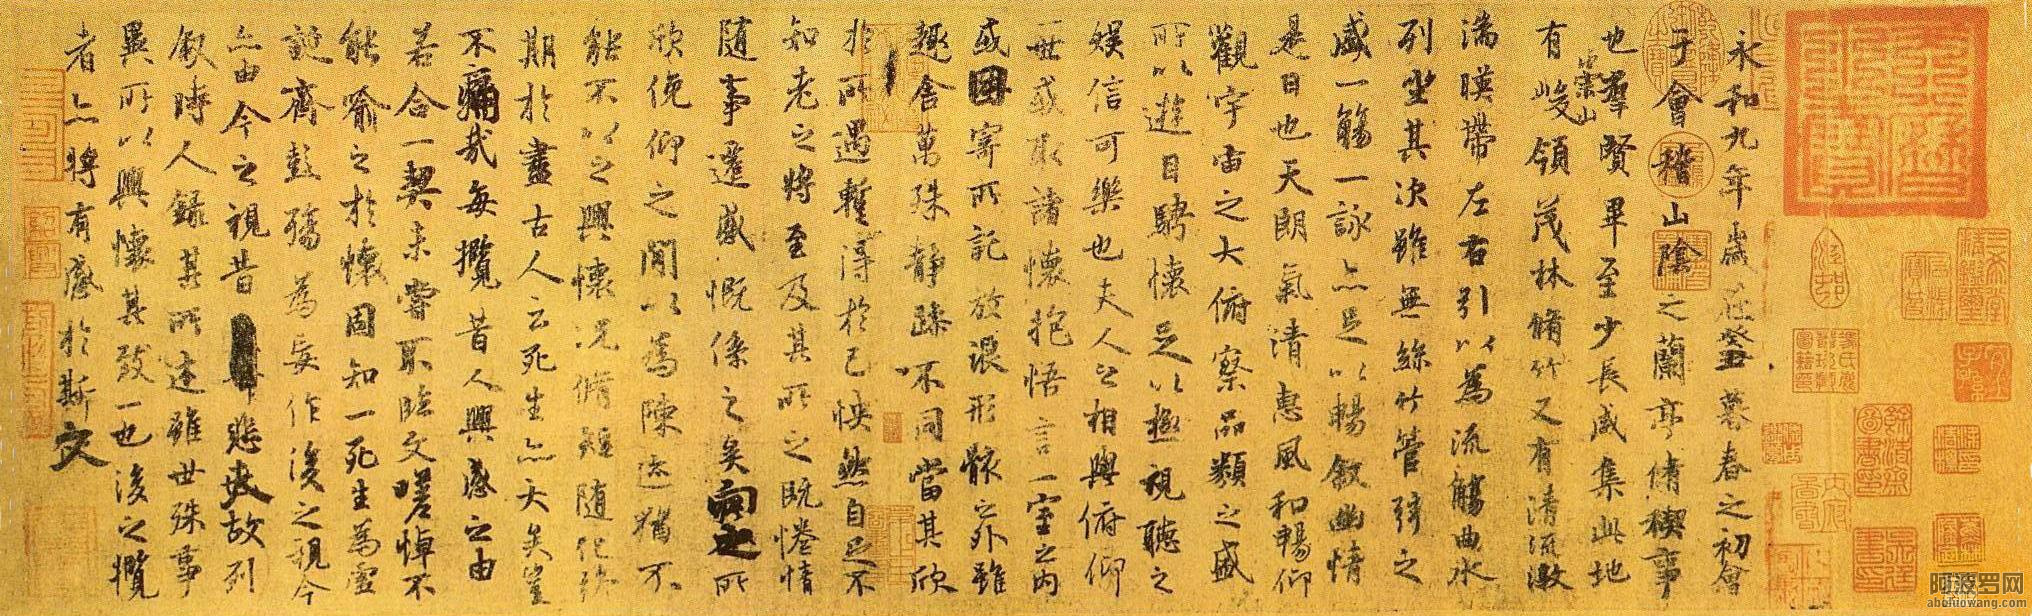 永和九年歲在癸丑暮春之初會
于會稽山陰之蘭亭脩稧事
也羣賢畢至少長咸集此地
有崇山峻領茂林脩竹又有清流激
湍暎帶左右引以為流觴曲水
列坐其次雖無絲竹管弦之
盛一觴一詠亦足以暢敘幽情
是日也天朗氣清惠風和暢仰
觀宇宙之大俯察品類之盛
所以遊目騁懷足以極視聽之
娛信可樂也夫人之相與俯仰
一世或取諸懷抱悟言一室之內
或因寄所託放浪形骸之外雖
趣舍萬殊靜躁不同當其欣
於所遇暫得於己怏然自足不
知老之將至及其所之既惓情
隨事遷感慨係之矣向之所
欣俛仰之閒以為陳迹猶不
能不以之興懷況脩短隨化終
期於盡古人云死生亦大矣豈
不痛哉每攬昔人興感之由
若合一契未嘗不臨文嗟悼不
能喻之於懷固知一死生為虛
誕齊彭殤為妄作後之視今
亦由今之視昔悲夫故列
敘時人錄其所述雖世殊事
異所以興懷其致一也後之攬
者亦將有感於斯文
阿波罗网
aboluowang.com